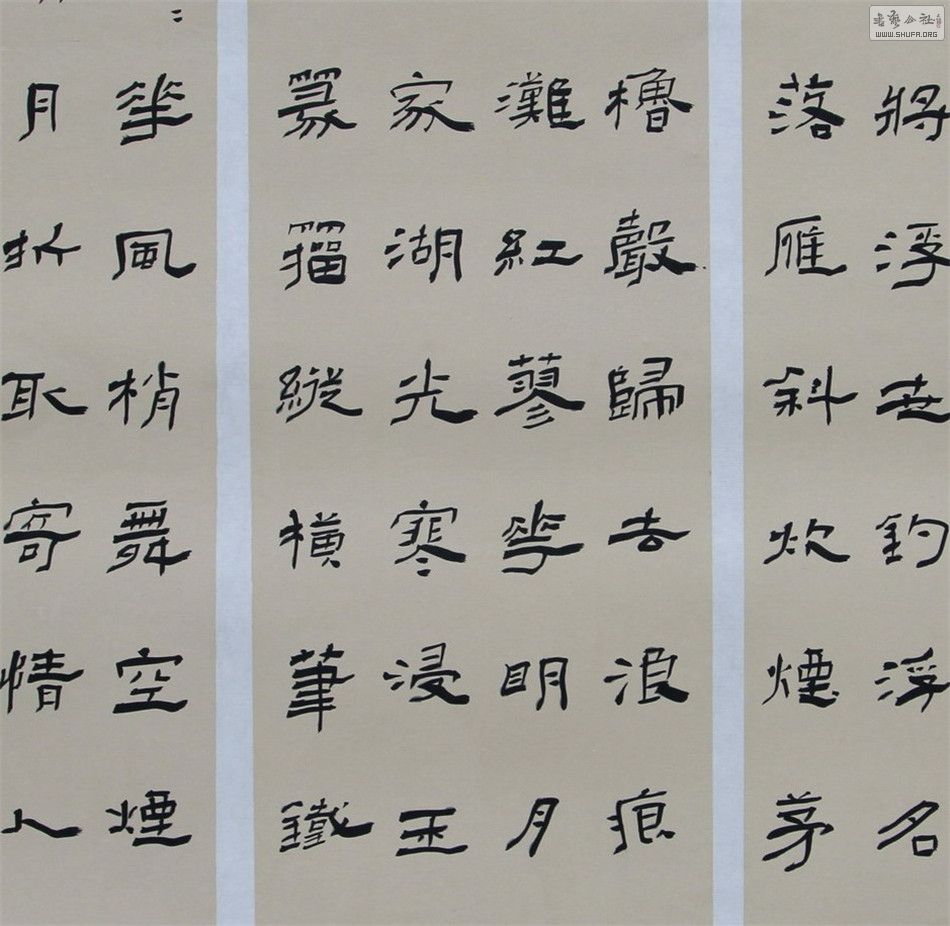 將浮世釣浮名
落雁斜炊煙茅
櫓聲歸去浪痕
灘紅蓼華明月
家湖光寒浸玉
篆籀縱橫筆鐵
華風梢舞空煙
月折取寄情人
書藝公社
WWW.SHUFA.ORG